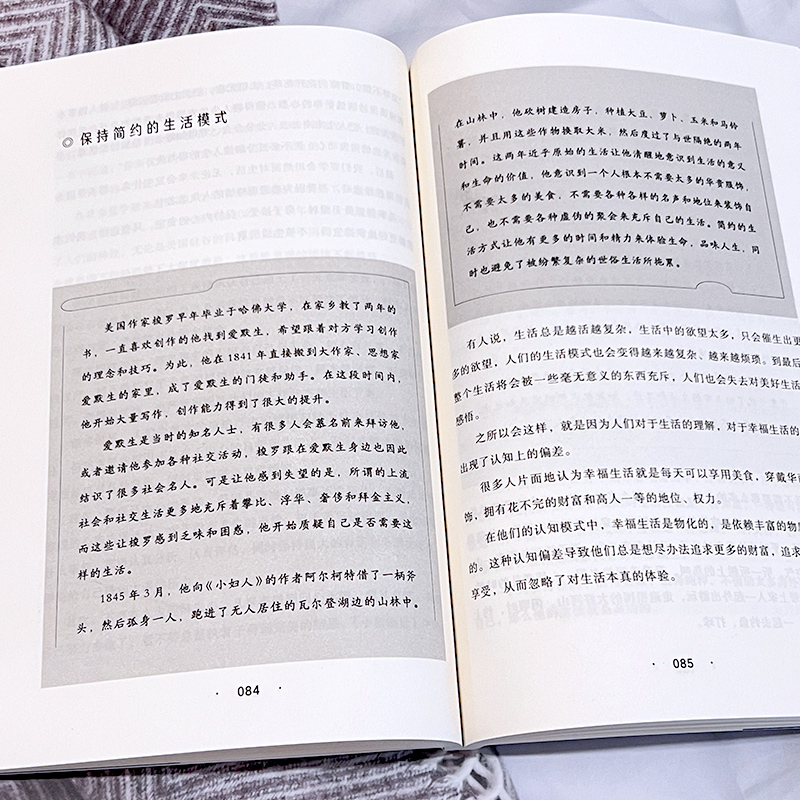 ◎ 保持简约的生活模式
美国作家梭罗早年毕业于哈佛大学，在家乡教了两年的
书，一直喜欢创作的他找到爱默生，希望跟着对方学习创作
的理念和技巧。为此，他在 1841 年直接搬到大作家、思想家
爱默生的家里，成了爱默生的门徒和助手。在这段时间内，
他开始大量写作，创作能力得到了很大的提升。
爱默生是当时的知名人士，有很多人会慕名前来拜访他，
或者邀请他参加各种社交活动，梭罗跟在爱默生身边也因此
结识了很多社会名人。可是让他感到失望的是，所谓的上流
社会和社交生活更多地充斥着攀比、浮华、奢侈和拜金主义，
而这些让梭罗感到乏味和困惑，他开始质疑自己是否需要这
样的生活。
1845 年 3 月，他向《小妇人》的作者阿尔柯特借了一柄斧
头，然后孤身一人，跑进了无人居住的瓦尔登湖边的山林中。
· 084 ·
在山林中，他砍树建造房子，种植大豆、萝卜、玉米和马铃
薯，并且用这些作物换取大米，然后度过了与世隔绝的两年
时间。这两年近乎原始的生活让他清醒地意识到生活的意义
和生命的价值，他意识到一个人根本不需要太多的华贵服饰，
不需要太多的美食，不需要各种各样的名声和地位来装饰自
己，也不需要各种虚伪的聚会来充斥自己的生活。简约的生
活方式让他有更多的时间和精力来体验生命，品味人生，同
时也避免了被纷繁复杂的世俗生活所拖累。
有人说，生活总是越活越复杂，生活中的欲望太多，只会催生出更
多的欲望，人们的生活模式也会变得越来越复杂、越来越烦琐。到最后
整个生活将会被一些毫无意义的东西充斥，人们也会失去对美好生活
感悟。
之所以会这样，就是因为人们对于生活的理解，对于幸福生活的
出现了认知上的偏差。
很多人片面地认为幸福生活就是每天可以享用美食，穿戴华
饰，拥有花不完的财富和高人一等的地位、权力。
在他们的认知模式中，幸福生活是物化的，是依赖丰富的物
的。这种认知偏差导致他们总是想尽办法追求更多的财富，追求
享受，从而忽略了对生活本真的体验。
· 085 ·